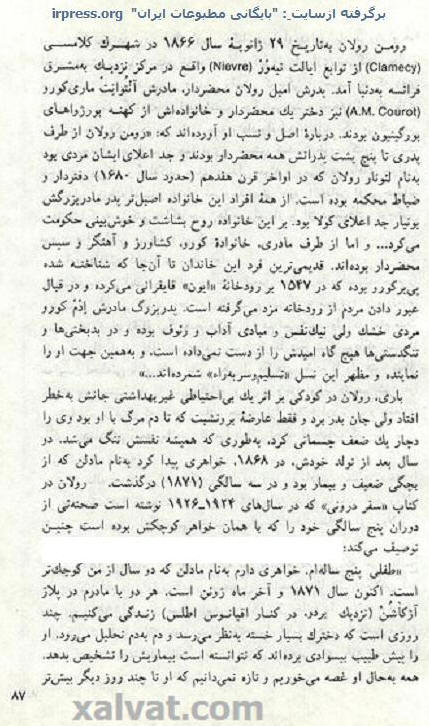 برگرفته ازسایت: "بایگانی مطبوعات ایران" irpress.org
رومن رولان به‌تاریخ ۲۹ ژانویهٔ سال ۱۸۶۶ در شهرك کلامسی
(Clamecy) از توابع ایالت نیه‌وْر (Nievre) واقع در مرکز نزدیك به‌مشرق
فرانسه به‌دنیا آمد. پدرش امیل رولان محضردار، مادرش آنتوانِت ماری‌کورو
(A.M. Courot) نیز دختر یك محضردار و خانواده‌اش از کهنه بورژواهای
بورگینیون بودند. دربارهٔ اصل و نسب او آورده‌اند که: «رومن رولان از طرف
پدری تا پنج پشت پدرانش همه محضردار بودند و جد اعلای ایشان مردی بود
به‌نام لئونار رولان که در اواخر قرن هفدهم (حدود سال ۱۶۸۰) دفتردار و
ضباط محکمه بوده است. از همهٔ افراد این خانواده اصیل‌تر پدر مادربزرگش
بونیار جد اعلای کولا بود. بر این خانواده روح بشاشت و خوش‌بینی حکومت
می‌کرد... و اما از طرف مادری، خانوادهٔ کورو، کشاورز و آهنگر و سپس
محضردار بوده‌اند. قدیمی‌ترین فرد این خاندان تا آن‌جا که شناخته شده
پی‌یرکورو بوده که در ۱۵۴۷ بر رودخانهٔ «ایون» قایقرانی می‌کرده و در قبال
عبور دادن مردم از رودخانه مزد می‌گرفته است. پدربزرگ مادرش اِدْم کورو
مردی خشك ولی نیك‌نفس و مبادی آداب و رئوف بوده و در بدبختی‌ها و
تنگدستی‌ها هیچ گاه امیدش را از دست نمی‌داده است. و به‌همین جهت او را
نماینده و مظهر این نسل «تسلیم‌وسربه‌راه» شمرده‌اند...»
باری، رولان در کودکی بر اثر یك بی‌احتیاطی غیربهداشتی جانش به‌خطر
افتاد ولی جان بدر برد و فقط عارضهٔ برنشیت که تا دم مرگ با او بود وی را
دچار یك ضعف جسمانی کرد، به‌طوری که همیشه نفسش تنگ می‌شد. دو
سال بعد از تولد خودش، در ۱۸۶۸، خواهری پیدا کرد به‌نام مادلن که از
بچگی ضعیف و بیمار بود و در سه سالگی (۱۸۷۱) درگذشت. رولان در
کتاب «سفر درونی» که در سال‌های ۱۹۲۴ـ۱۹۲۶ نوشته است صحنه‌ئی از
دوران پنج سالگی خود را که با همان خواهر کوچکش بوده است چنین
توصیف می‌کند:
«طفلی پنج ساله‌ام. خواهری دارم به‌نام مادلن که دو سال از من کوچك‌تر
است. اکنون سال ۱۸۷۱ و آخر ماه ژوئن است. هر دو با مادرم در پلاژ
آرکاشُنْ (نزدیك بردو، در کنار اقیانوس اطلس) زندگی می‌کنیم. چند
روزی است که دخترك بسیار خسته به‌نظر می‌رسد و دم به‌دم تحلیل می‌رود. او
را پیش طبیب بیسوادی برده‌اند که نتوانسته است بیماریش را تشخیص بدهد.
همه به‌حال او غصه می‌خوریم و تازه نمی‌دانیم که او تا چند روز دیگر بیش‌تر
۸۷
xalvat.com